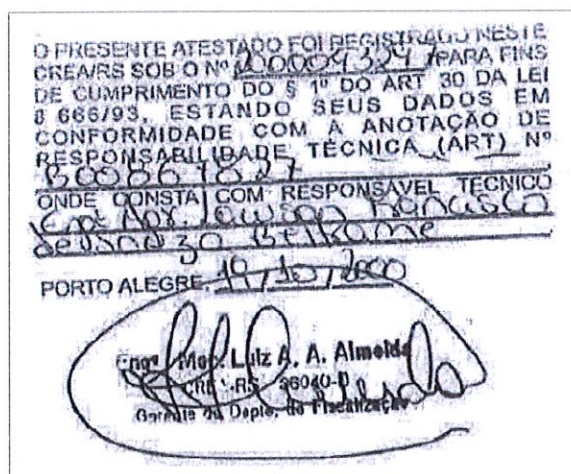 O PRESENTE ATESTADO FOI REGISTRADO NESTE
CREA/RS SOB O Nº PARA FINS
DE CUMPRIMENTO DO § 1º DO ART 30 DA LEI
8 666/93, ESTANDO SEUS DADOS EM
CONFORMIDADE COM A ANOTAÇÃO DE
RESPONSABILIDADE TÉCNICA (ART) Nº
B00867827
ONDE CONSTA COM RESPONSÁVEL TÉCNICO
PORTO ALEGRE, 19/10/2000
Engº Luiz A. A. Almeida
36040-D
Gerente do Depto. de Fiscalização